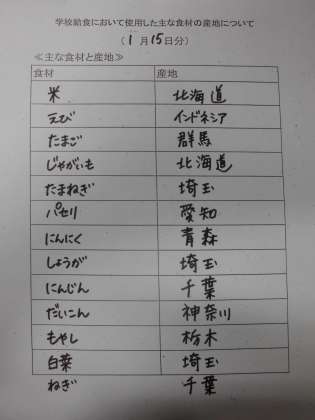 学校給食において使用した主な食材の産地について
（1月15日分）
≪主な食材と産地≫
食材 産地
米 北海道
えび インドネシア
たまご 群馬
じゃがいも 北海道
たまねぎ 埼玉
パセリ 愛知
にんにく 青森
しょうが 埼玉
にんじん 千葉
だいこん 神奈川
もやし 栃木
白菜 埼玉
ねぎ 千葉